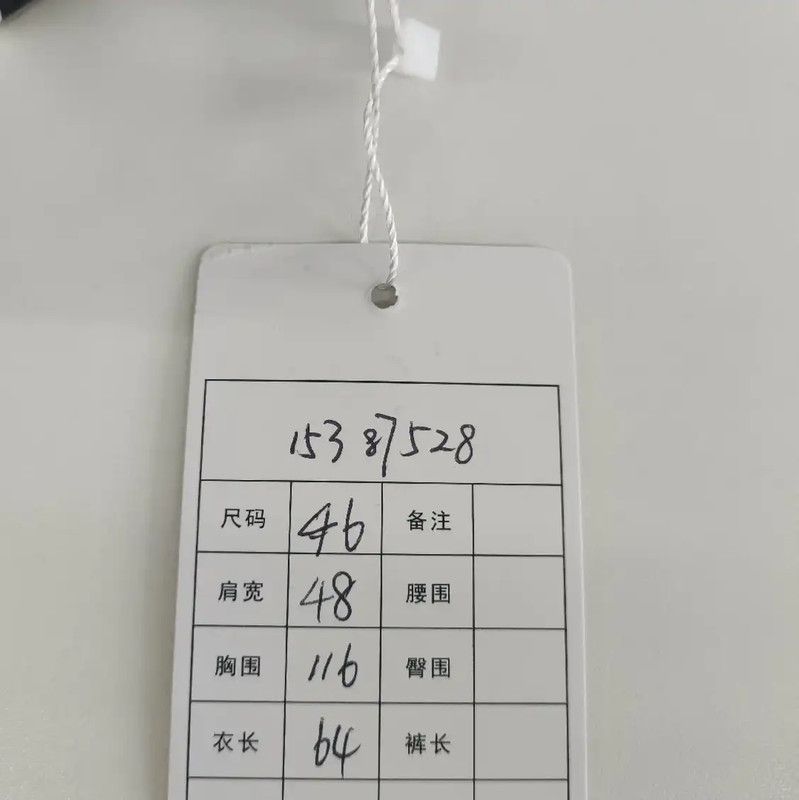 15387528
尺码 46 备注
肩宽 48 腰围
胸围 116 臀围
衣长 64 裤长